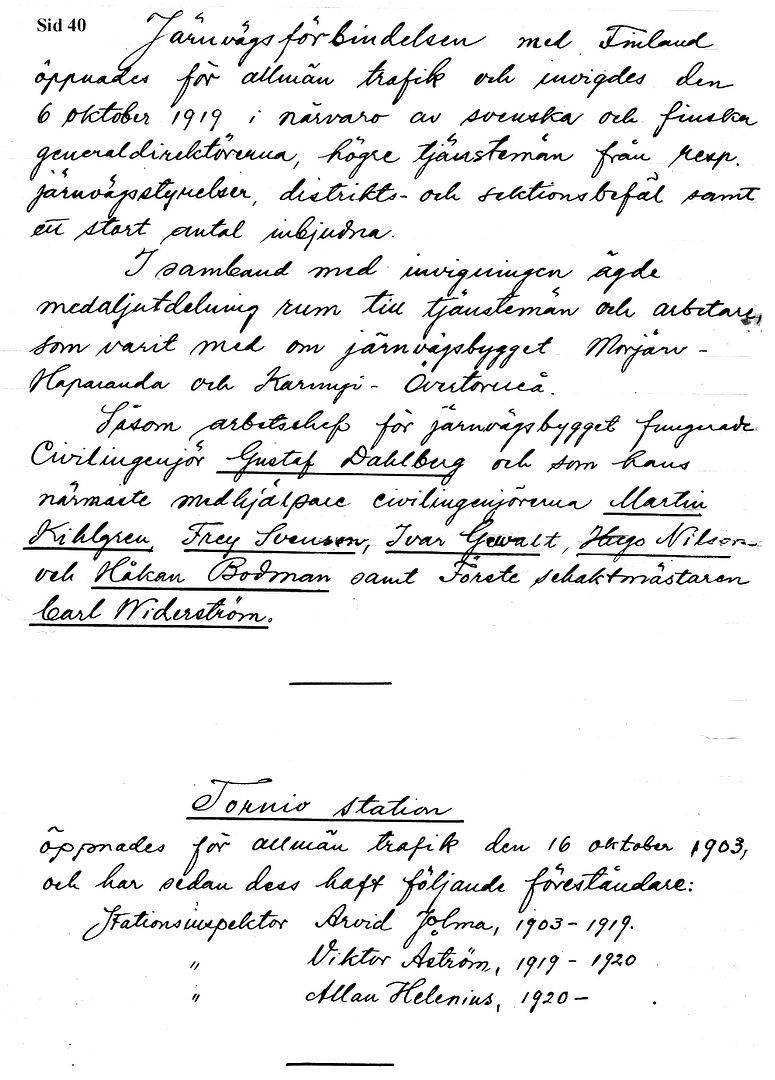 Sid 40
Järnvägsförbindelsen med Finland
öppnades för allmän trafik och invigdes den
6 oktober 1919 i närvaro av svenska och finska
generaldirektörerna, högre tjänstemän från resp.
järnvägsstyrelser, distrikts- och sektionsbefäl samt
ett stort antal inbjudna.
I samband med invigningen ägde
medaljutdelning rum till tjänstemän och arbetare,
som varit med om järnvägsbygget Morjärv -
Haparanda och Karungi - Övertorneå.
Såsom arbetschef för järnvägsbygget fungerade
Civilingenjör Gustaf Dahlberg och som hans
närmaste medhjälpare civilingenjörerna Martin
Kihlgren, Frey Svenson, Ivar Gewalt, Hugo Nilson
och Håkan Bodman samt Förste schaktmästaren
Carl Widerström.
Tornio station
öppnades för allmän trafik den 16 oktober 1903,
och har sedan dess haft följande föreståndare:
Stationsinspektor Arvid Jolma, 1903-1919.
" Viktor Åström, 1919 - 1920
" Allan Helenius, 1920 - .